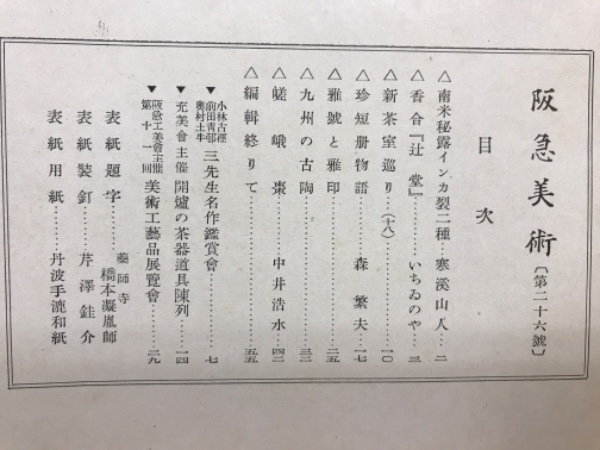 阪急美術〔第二十六號〕
目次
△南米秘露インカ裂二種…寒溪山人…二
△香合『辻堂』………いちゐのや…三
△新茶室巡り(十八)………一〇
△珍短册物語………森繁夫…一七
△雅號と雅印………二五
△九州の古陶………三二
△嵯峨棗………中井浩水…四二
△編輯終りて………五五
▼小林古徑 前田青邨 奥村土牛 三先生名作鑑賞會………七
▼充美會主催開爐の茶器道具陳列………一四
▼阪急工美會主催 第十一回 美術工藝品展覽會………二九
表紙題字………藥師寺 橋本凝胤師
表紙裝釘………芹澤銈介
表紙用紙………丹波手漉和紙